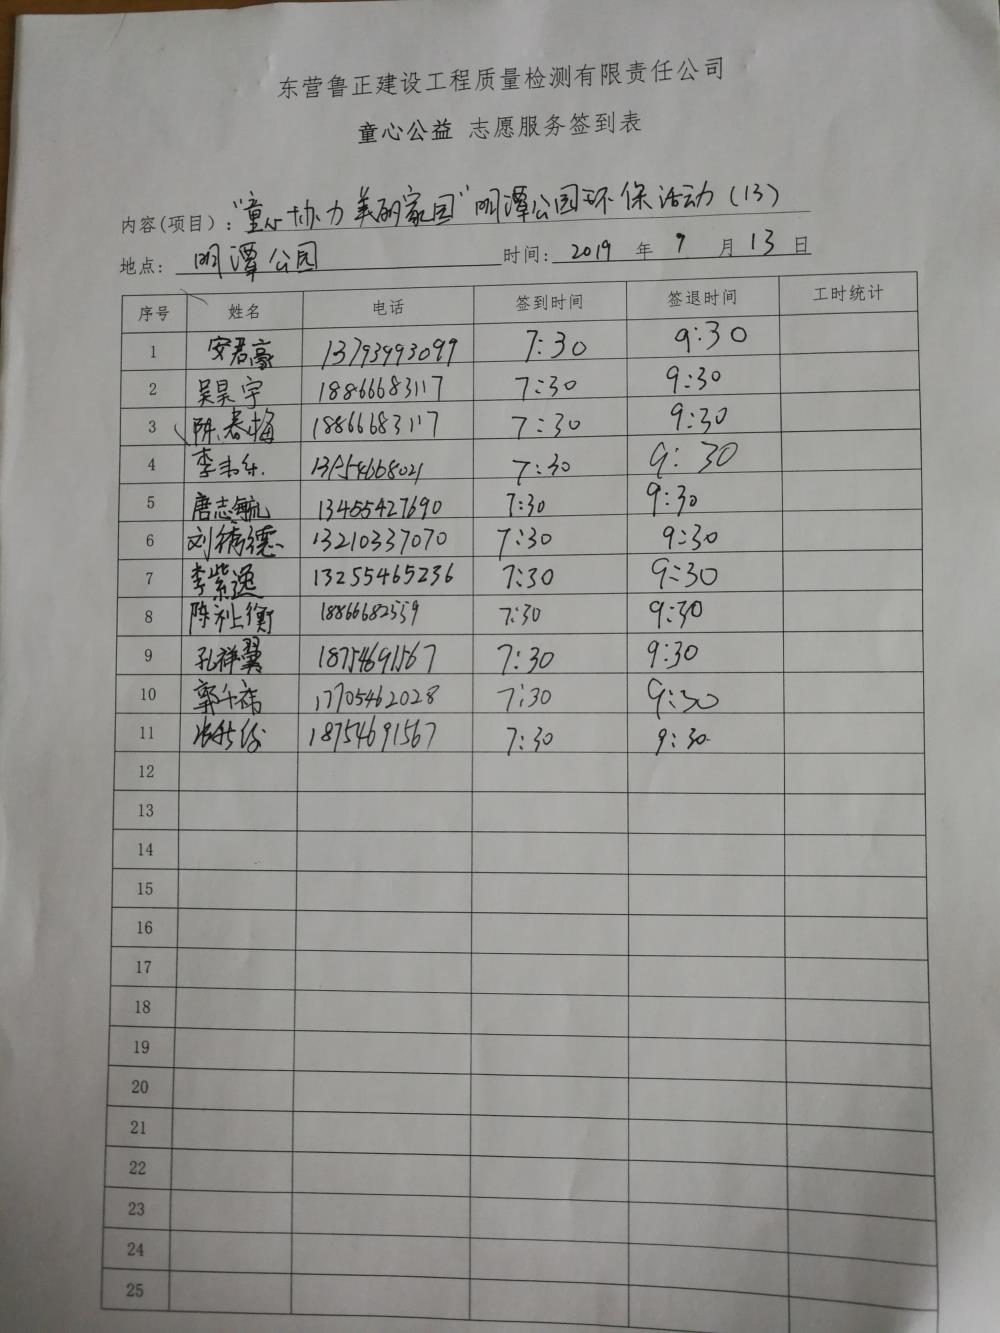 东营鲁正建设工程质量检测有限责任公司
童心公益 志愿服务签到表
内容(项目)：“童心协力 美丽家园”明潭公园环保活动(13)
地点： 明潭公园 时间： 2019 年 7 月 13 日
序号 姓名 电话 签到时间 签退时间 工时统计
1 安君豪 13793993099 7:30 9:30
2 吴昊宇 18866683117 7:30 9:30
3 陈春梅 18866683117 7:30 9:30
4 7:30 9:30
5 唐志毓 13455427690 7:30 9:30
6 刘德 13210337070 7:30 9:30
7 李紫逸 13255465236 7:30 9:30
8 陈衡 18866682559 7:30 9:30
9 孔祥翼 18754691567 7:30 9:30
10 郭千祎 17705462028 7:30 9:30
11 18754691567 7:30 9:30
12
13
14
15
16
17
18
19
20
21
22
23
24
25